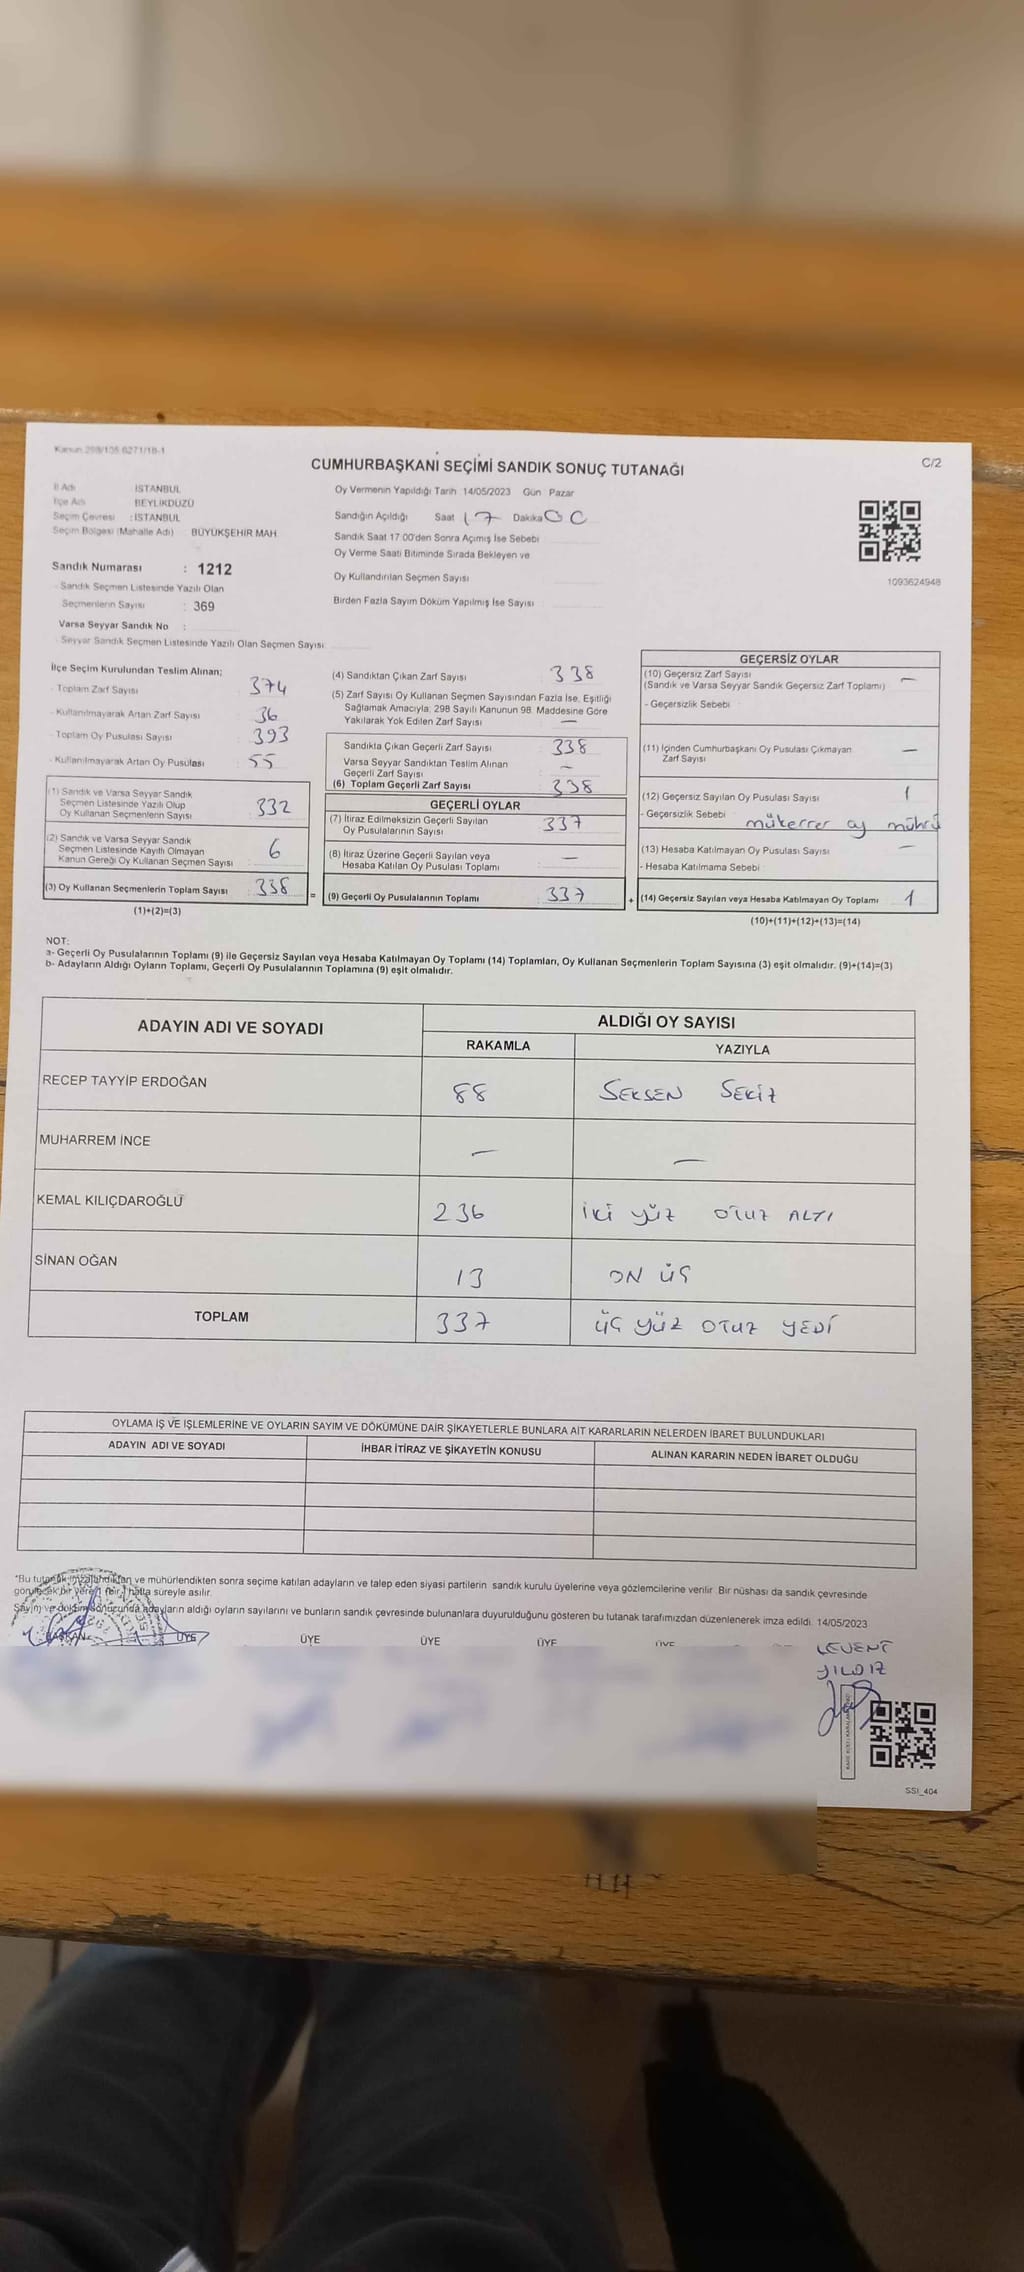 Kanun 298/105 6271/18-1
C/2
CUMHURBAŞKANI SEÇİMİ SANDIK SONUÇ TUTANAĞI
İl Adı İSTANBUL
İlçe Adı BEYLİKDÜZÜ
Seçim Çevresi : İSTANBUL
Seçim Bölgesi (Mahalle Adı) BÜYÜKŞEHİR MAH.
Sandık Numarası : 1212
Sandık Seçmen Listesinde Yazılı Olan
Seçmenlerin Sayısı : 369
Varsa Seyyar Sandık No :
Seyyar Sandık Seçmen Listesinde Yazılı Olan Seçmen Sayısı
Oy Vermenin Yapıldığı Tarih 14/05/2023 Gün Pazar
Sandığın Açıldığı Saat 17 Dakika 00
Sandık Saat 17:00'den Sonra Açımış İse Sebebi
Oy Verme Saati Bitiminde Sırada Bekleyen ve
Oy Kullandırılan Seçmen Sayısı
Birden Fazla Sayım Döküm Yapılmış İse Sayısı
1093624948
İlçe Seçim Kurulundan Teslim Alınan;
- Toplam Zarf Sayısı 374
- Kullanılmayarak Artan Zarf Sayısı 36
- Toplam Oy Pusulası Sayısı 393
- Kullanılmayarak Artan Oy Pusulası 55
(1) Sandık ve Varsa Seyyar Sandık
Seçmen Listesinde Yazılı Olup
Oy Kullanan Seçmenlerin Sayısı 332
(2) Sandık ve Varsa Seyyar Sandık
Seçmen Listesinde Kayıtlı Olmayan
Kanun Gereği Oy Kullanan Seçmen Sayısı 6
(3) Oy Kullanan Seçmenlerin Toplam Sayısı 338 =
(1)+(2)=(3)
(4) Sandıktan Çıkan Zarf Sayısı 338
(5) Zarf Sayısı Oy Kullanan Seçmen Sayısından Fazla İse, Eşitliği
Sağlamak Amacıyla, 298 Sayılı Kanunun 98. Maddesine Göre
Yakılarak Yok Edilen Zarf Sayısı —
Sandıkta Çıkan Geçerli Zarf Sayısı 338
Varsa Seyyar Sandıktan Teslim Alınan
Geçerli Zarf Sayısı —
(6) Toplam Geçerli Zarf Sayısı 338
GEÇERLİ OYLAR
(7) İtiraz Edilmeksizin Geçerli Sayılan
Oy Pusulalarının Sayısı 337
(8) İtiraz Üzerine Geçerli Sayılan veya
Hesaba Katılan Oy Pusulası Toplamı —
(9) Geçerli Oy Pusulalarının Toplamı 337 +
GEÇERSİZ OYLAR
(10) Geçersiz Zarf Sayısı
(Sandık ve Varsa Seyyar Sandık Geçersiz Zarf Toplamı) —
- Geçersizlik Sebebi
(11) İçinden Cumhurbaşkanı Oy Pusulası Çıkmayan
Zarf Sayısı —
(12) Geçersiz Sayılan Oy Pusulası Sayısı 1
- Geçersizlik Sebebi mükerrer oy mührü
(13) Hesaba Katılmayan Oy Pusulası Sayısı —
- Hesaba Katılmama Sebebi
(14) Geçersiz Sayılan veya Hesaba Katılmayan Oy Toplamı 1
(10)+(11)+(12)+(13)=(14)
NOT:
a- Geçerli Oy Pusulalarının Toplamı (9) ile Geçersiz Sayılan veya Hesaba Katılmayan Oy Toplamı (14) Toplamları, Oy Kullanan Seçmenlerin Toplam Sayısına (3) eşit olmalıdır. (9)+(14)=(3)
b- Adayların Aldığı Oyların Toplamı, Geçerli Oy Pusulalarının Toplamına (9) eşit olmalıdır.
ADAYIN ADI VE SOYADI ALDIĞI OY SAYISI
RAKAMLA YAZIYLA
RECEP TAYYİP ERDOĞAN 88 SEKSEN SEKİZ
MUHARREM İNCE — —
KEMAL KILIÇDAROĞLU 236 İKİ YÜZ OTUZ ALTI
SİNAN OĞAN 13 ON ÜÇ
TOPLAM 337 ÜÇ YÜZ OTUZ YEDİ
OYLAMA İŞ VE İŞLEMLERİNE VE OYLARIN SAYIM VE DÖKÜMÜNE DAİR ŞİKAYETLERLE BUNLARA AİT KARARLARIN NELERDEN İBARET BULUNDUKLARI
ADAYIN ADI VE SOYADI İHBAR İTİRAZ VE ŞİKAYETİN KONUSU ALINAN KARARIN NEDEN İBARET OLDUĞU
*Bu tutanak imzalandıktan ve mühürlendikten sonra seçime katılan adayların ve talep eden siyasi partilerin sandık kurulu üyelerine veya gözlemcilerine verilir. Bir nüshası da sandık çevresinde
görülecek bir yere 1 (bir) hafta süreyle asılır.
Sayım ve döküm sonucunda adayların aldığı oyların sayılarını ve bunların sandık çevresinde bulunanlara duyurulduğunu gösteren bu tutanak tarafımızdan düzenlenerek imza edildi. 14/05/2023
BAŞKAN ÜYE ÜYE ÜYE ÜYE ÜYE
LEVENT
YILDIZ
SSI_404